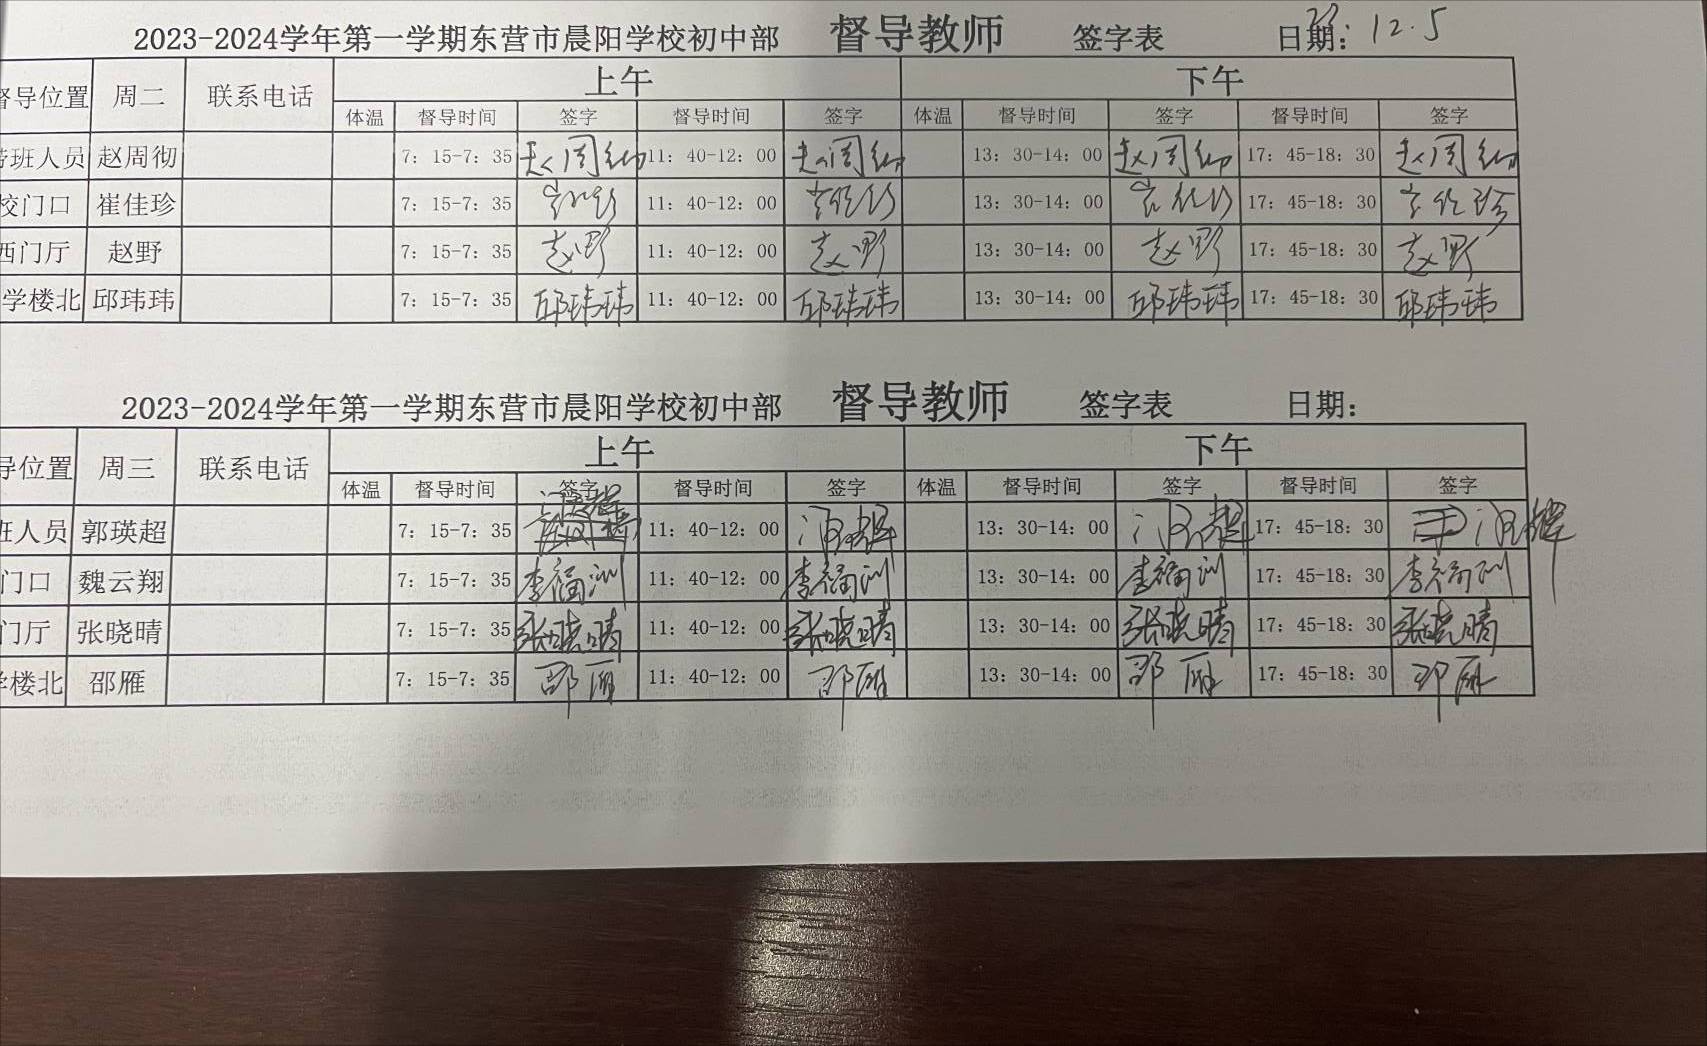 2023-2024学年第一学期东营市晨阳学校初中部 督导教师 签字表 日期: 23 12.5
督导位置 周二 联系电话 上午 下午
体温 督导时间 签字 督导时间 签字 体温 督导时间 签字 督导时间 签字
带班人员 赵周彻 7：15-7：35 赵周彻 11：40-12：00 赵周彻 13：30-14：00 赵周彻 17：45-18：30 赵周彻
校门口 崔佳珍 7：15-7：35 11：40-12：00 13：30-14：00 17：45-18：30
西门厅 赵野 7：15-7：35 赵野 11：40-12：00 赵野 13：30-14：00 赵野 17：45-18：30 赵野
学楼北 邱玮玮 7：15-7：35 邱玮玮 11：40-12：00 邱玮玮 13：30-14：00 邱玮玮 17：45-18：30 邱玮玮
2023-2024学年第一学期东营市晨阳学校初中部 督导教师 签字表 日期:
导位置 周三 联系电话 上午 下午
体温 督导时间 签字 督导时间 签字 体温 督导时间 签字 督导时间 签字
班人员 郭瑛超 7：15-7：35 11：40-12：00 13：30-14：00 17：45-18：30
门口 魏云翔 7：15-7：35 李福训 11：40-12：00 李福训 13：30-14：00 李福训 17：45-18：30 李福训
门厅 张晓晴 7：15-7：35 张晓晴 11：40-12：00 张晓晴 13：30-14：00 张晓晴 17：45-18：30 张晓晴
学楼北 邵雁 7：15-7：35 邵雁 11：40-12：00 邵雁 13：30-14：00 邵雁 17：45-18：30 邵雁